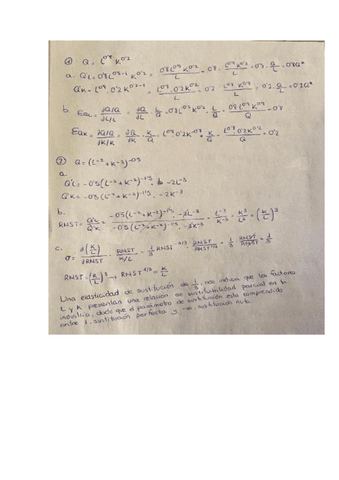 ⑥ Q = L^0'8 K^0'2
a. Q'L = 0'8 L^0'8-1 K^0'2 = 0'8 L^0'8 K^0'2 / L = 0'8 · L^0'8 K^0'2 / L = 0'8 · Q/L
Q'K = L^0'8 0'2 K^0'2-1 = L^0'8 0'2 K^0'2 = 0'2 · L^0'8 K^0'2 = 0'2
b. EQL = ∂Q/Q / ∂L/L = ∂Q/∂L · L/Q = 0'8 L^0'8 K^0'2 = 0'8
EQK = ∂Q/Q / ∂K/K = ∂Q/∂K · K/Q = L^0'8 0'2 K^-0'8 · K/Q = L^0'8 0'2 K^0'2 / Q = 0'2
⑦ Q = (L^-2 + K^-2)^-0'5
a.
Q'L = -0'5 (L^-2 + K^-2)^-1'5 · -2L^-3
Q'K = -0'5 (L^-2 + K^-2)^-1'5 · -2K^-3
b.
RNST = Q'L / Q'K = -0'5 (L^-2 + K^-2)^-1'5 · -2L^-3 / -0'5 (L^-2 + K^-2)^-1'5 · -2K^-3 = L^-3 / K^-3 = K^3 / L^3 = (K/L)^3
c.
σ = d(K/L) / dRNST · RNST / K/L = 1/3 RNST^-2/3 · RNST / RNST^1/3 = 1/3 · RNST / RNST = 1/3
RNST = (K/L)^3 → RNST^1/3 = K/L
Una elasticidad de sustitución de 1/3, nos indica que los factores
L y K presentan una relación de sustituibilidad parcial en la
dado que el parámetro de sustitución está comprendido
entre 1, sustitución perfecta y sustitución nula.